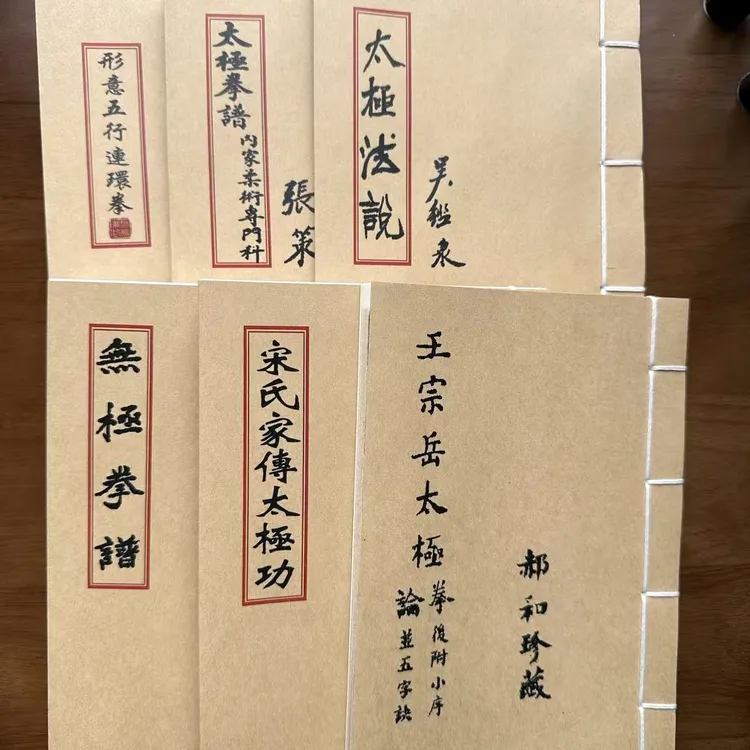 形意五行連環拳
太極拳譜
內家柔術専門科
張策
太極法說
吳鑑泉
無極拳譜
宋氏家傳太極功
王宗岳太極拳後附小序
論並五字訣
郝和珍藏